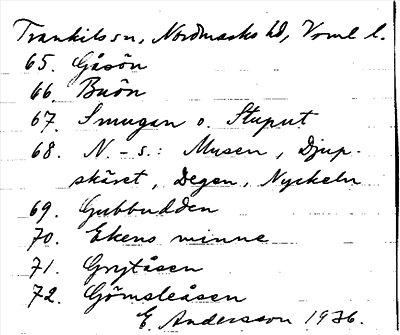 Trankils sn, Nordmarks hd, Vrml l.
65. Gåsön
66. Buön
67. Smugan o. Stuput
68. N.-s.: Musen, Djup-
skäret, Degen, Nyckeln
69. Gubbudden
70. Ekens minne
71. Grytåsen
72. Gömsleåsen
E. Andersson 1936.